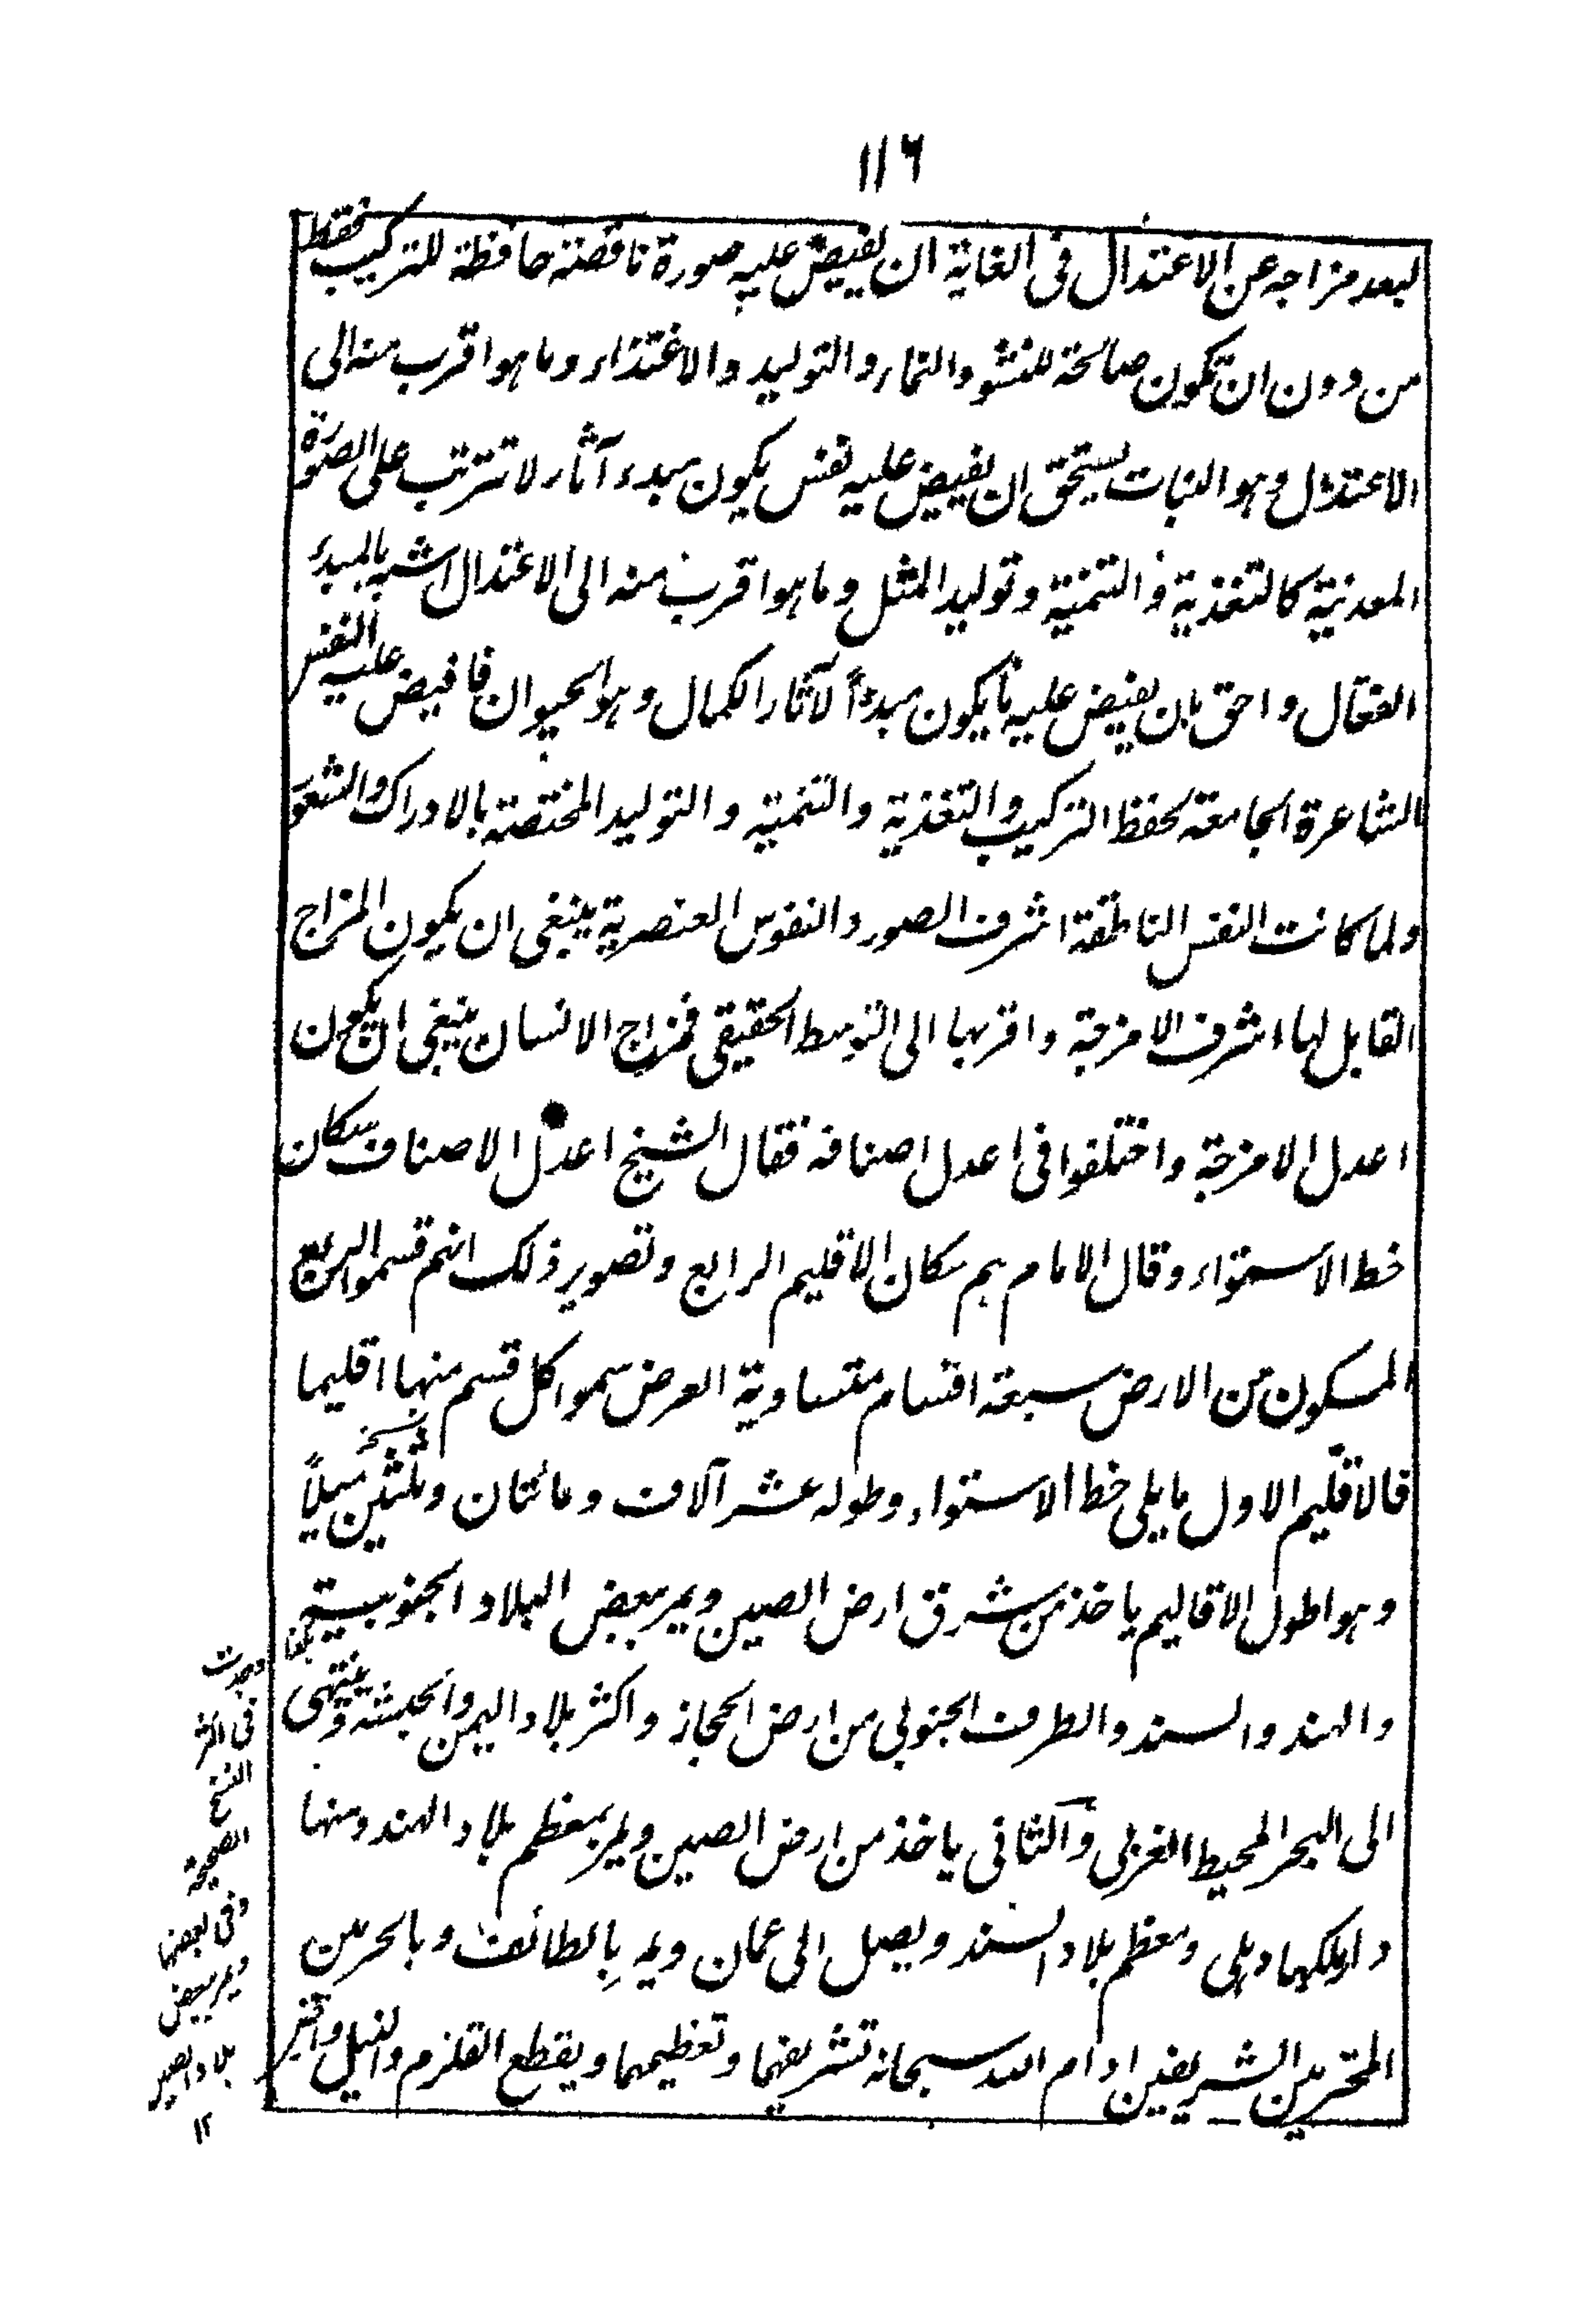 ١١٦
لبعد مزاجه عن الاعتدال فى الغاية ان يفيض عليه صورة ناقصة حافظة للتركيب فقط
من دون ان تكون صالحة للنشو والنماء والتوليد والاغتذاء وما هو اقرب منه الى
الاعتدال وهو النبات يستحق ان يفيض عليه نفس يكون مبدء آثار لا تترتب على الصورة
المعدنية كالتغذية والتنمية وتوليد المثل وما هو اقرب منه الى الاعتدال اشبه بالمبدء
الفعال واحق بان يفيض عليه ما يكون مبدءاً لآثار الكمال وهو الحيوان فافيض عليه النفس
الشاعرة الجامعة لحفظ التركيب والتغذية والتنمية والتوليد المختصة بالادراك والشعور
ولما كانت النفس الناطقة اشرف الصور والنفوس العنصرية ينبغى ان يكون المزاج
القابل لها اشرف الامزجة واقربها الى التوسط الحقيقى فمزاج الانسان ينبغى ان يكون
اعدل الامزجة واختلفوا فى اعدل اصنافه فقال الشيخ اعدل الاصناف سكان
خط الاستواء وقال الامام هم سكان الاقليم الرابع وتصوير ذلك انهم قسموا الربع
المسكون من الارض سبعة اقسام متساوية العرض سموا كل قسم منها اقليما
فالاقليم الاول ما يلى خط الاستواء وطوله عشر آلاف ومائتان وثلثين ميلاً
وهو اطول الاقاليم ياخذ من شرق ارض الصين ويمر ببعض البلاد الجنوبية
والهند والسند والطرف الجنوبى من ارض الحجاز واكثر بلاد اليمن والحبشة وينتهى
الى البحر المحيط الغربى والثانى ياخذ من ارض الصين ويمر بمعظم بلاد الهند ومنها
دار ملكها دهلى ومعظم بلاد السند ويصل الى عمان ويمر بالطائف وبالحرمين
المحترمين الشريفين ادام الله سبحانه تشريفهما وتعظيمهما ويقطع القلزم والنيل
فى اكثر
النسخ
الصحيحة
وفى بعضها
ويمر ببعض
بلاد الصين
١٢